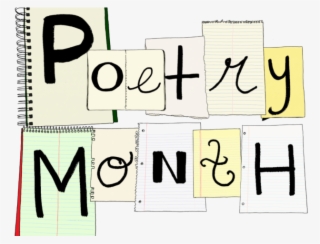 Poetry
MonTH